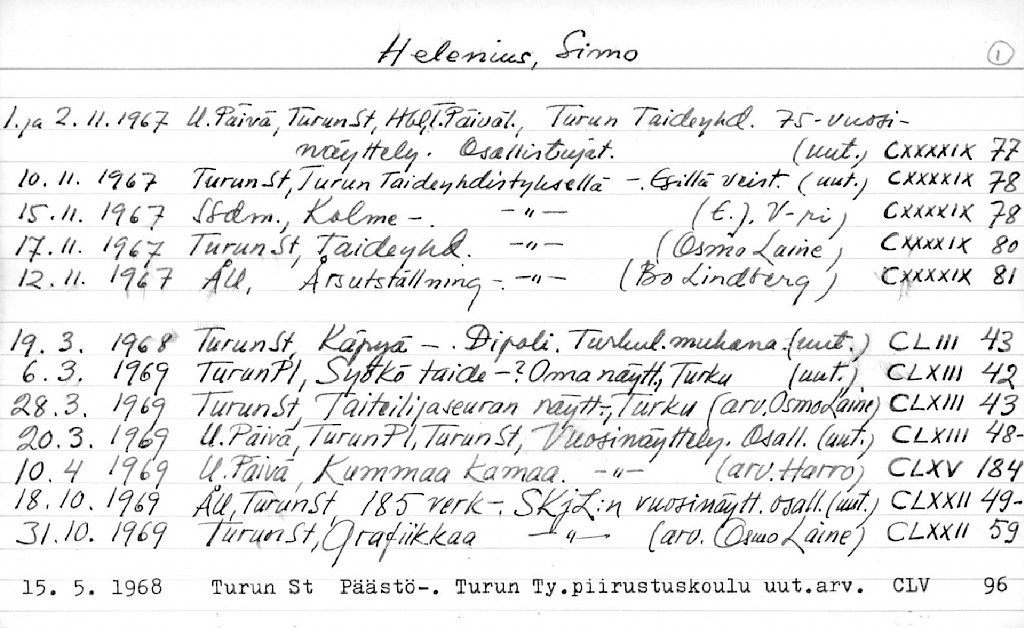 Helenius, Simo 1
1. ja 2.11.1967 U.Päivä, TurunSt, Hbl, T.Päiväl., Turun Taideyhd. 75-vuosi-
näyttely. Osallistujat. (uut.) CXXXXIX 77
10.11.1967 TurunSt, Turun Taideyhdistyksellä -. Esillä veist. (uut.) CXXXXIX 78
15.11.1967 SSdm., Kolme - -"- (E.J. V-ri) CXXXXIX 78
17.11.1967 TurunSt, Taideyhd. -"- (Osmo Laine) CXXXXIX 80
12.11.1967 ÅU, Årsutställning -. -"- (Bo Lindberg) CXXXXIX 81
19.3. 1968 TurunSt, Käpyä -. Dipoli. Turkul. mukana. (uut.) CLIII 43
6.3. 1969 TurunPl, Syökö taide -? Oma näytt., Turku (uut.) CLXIII 42
28.3. 1969 TurunSt, Taiteilijaseuran näytt-, Turku (arv. Osmo Laine) CLXIII 43
20.3. 1969 U.Päivä, TurunPl, TurunSt, Vuosinäyttely. Osall. (uut.) CLXIII 48-
10.4 1969 U.Päivä, Kummaa kamaa. -"- (arv. Harro) CLXV 184
18.10.1969 ÅU, TurunSt, 185 verk-. SKjL:n vuosinäytt. osall. (uut.) CLXXII 49-
31.10.1969 TurunSt, Grafiikkaa -"- (arv. Osmo Laine) CLXXII 59
15. 5. 1968 Turun St Päästö-. Turun Ty.piirustuskoulu uut.arv. CLV 96